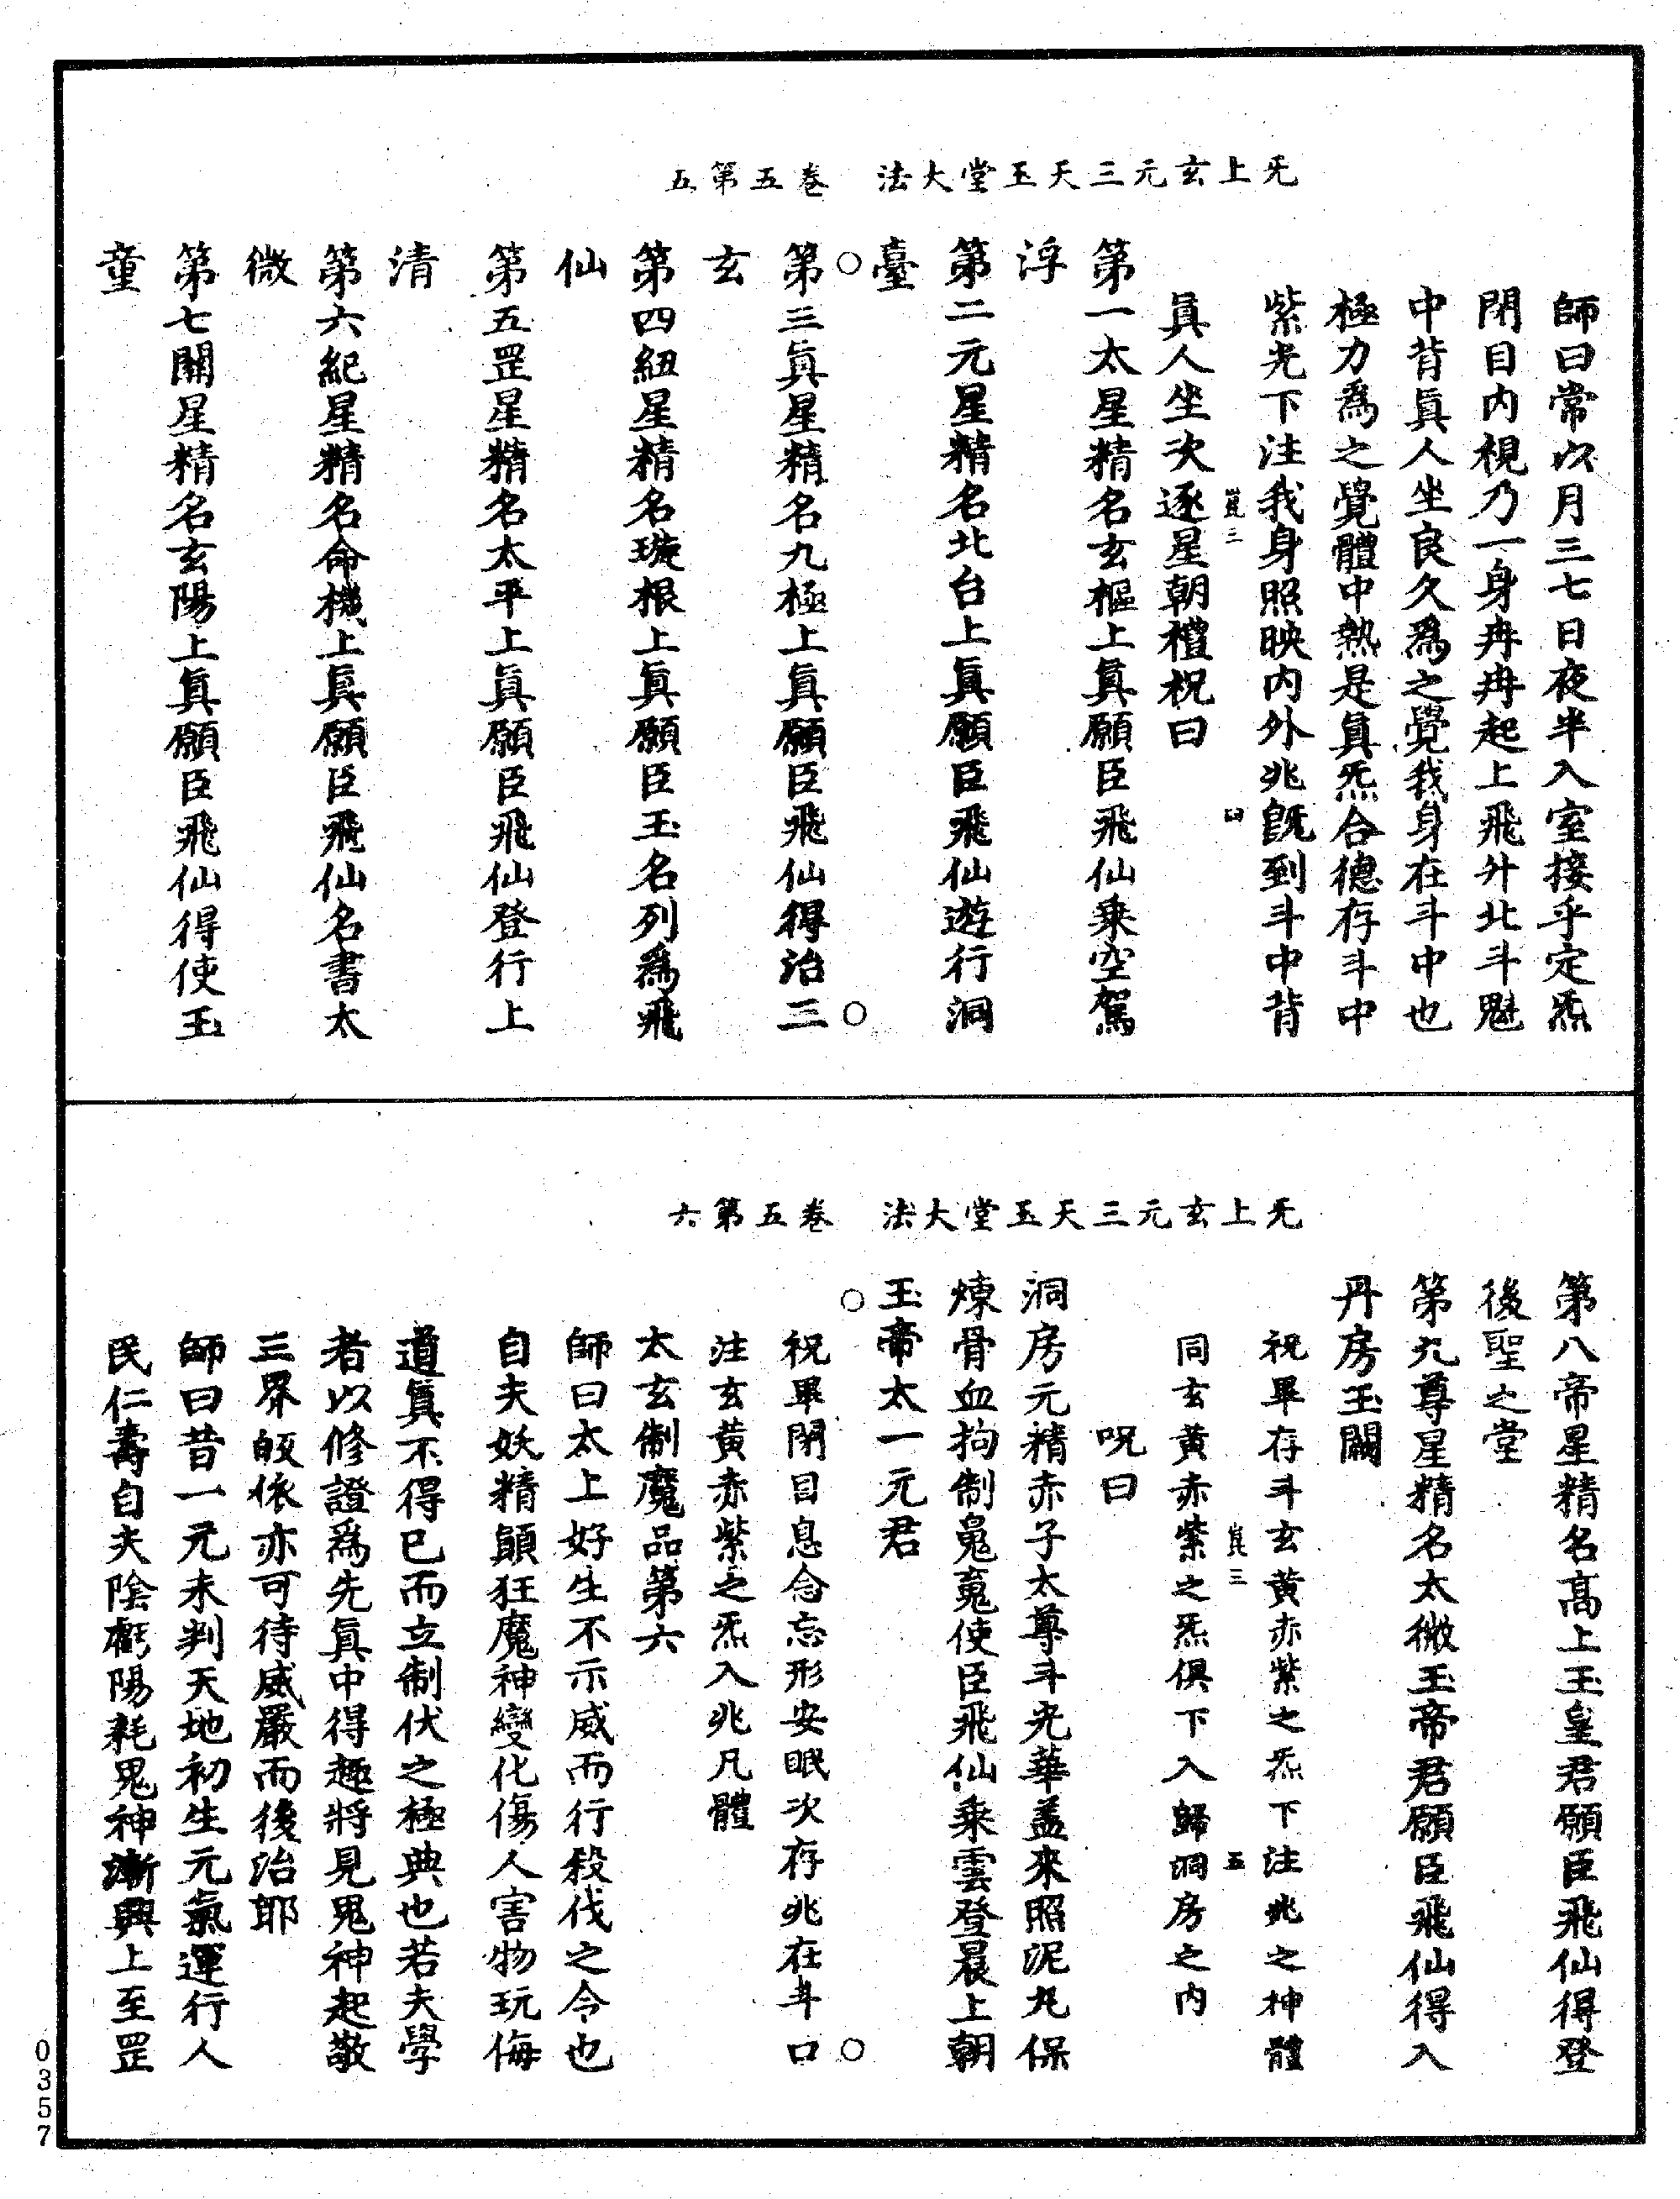 五第五卷　法大堂玉天三元玄上旡
師曰常以月三七日夜半入室接乎定炁
閉目內視乃一身冉冉起上飛升北斗魁
中背眞人坐良久爲之覺我身在斗中也
極力爲之覺體中熱是眞炁合德存斗中
紫光下注我身照映內外兆旣到斗中背
三
四
眞人坐次逐星朝禮祝曰
第一太星精名玄樞上眞願臣飛仙乗空駕
浮
第二元星精名北台上眞願臣飛仙遊行洞
臺
第三眞星精名九極上眞願臣飛仙得治三
玄
第四紐星精名璇根上眞願臣玉名列爲飛
仙
第五罡星精名太平上眞願臣飛仙登行上
清
第六紀星精名命機上眞願臣飛仙名書太
微
第七關星精名玄陽上眞願臣飛仙得使玉
童
六第五卷　法大堂玉天三元玄上旡
第八帝星精名高上玉皇君願臣飛仙得登
後聖之堂
第九尊星精名太微玉帝君願臣飛仙得入
丹房玉闕
祝畢存斗玄黄赤紫之炁下注兆之神體
三
五
同玄黄赤紫之炁俱下入歸洞房之內
呪曰
洞房元精赤子太尊斗光華蓋來照泥丸保
煉骨血拘制䰟寬使臣飛仙乗雲登晨上朝
玉帝太一元君
祝畢閉目息念忘形安眠次存兆在斗口
注玄黄赤紫之炁入兆凡體
太玄制魔品第六
師曰太上好生不示威而行殺伐之令也
自夫妖精顚狂魔神變化傷人害物玩侮
道眞不得已而立制伏之極典也若夫學
者以修證爲先眞中得趣將見鬼神起敬
三界皈依亦可待威嚴而後治耶
師曰昔一元未判天地初生元氣運行人
民仁壽自夫陰虧陽耗鬼神漸興上至罡
0357